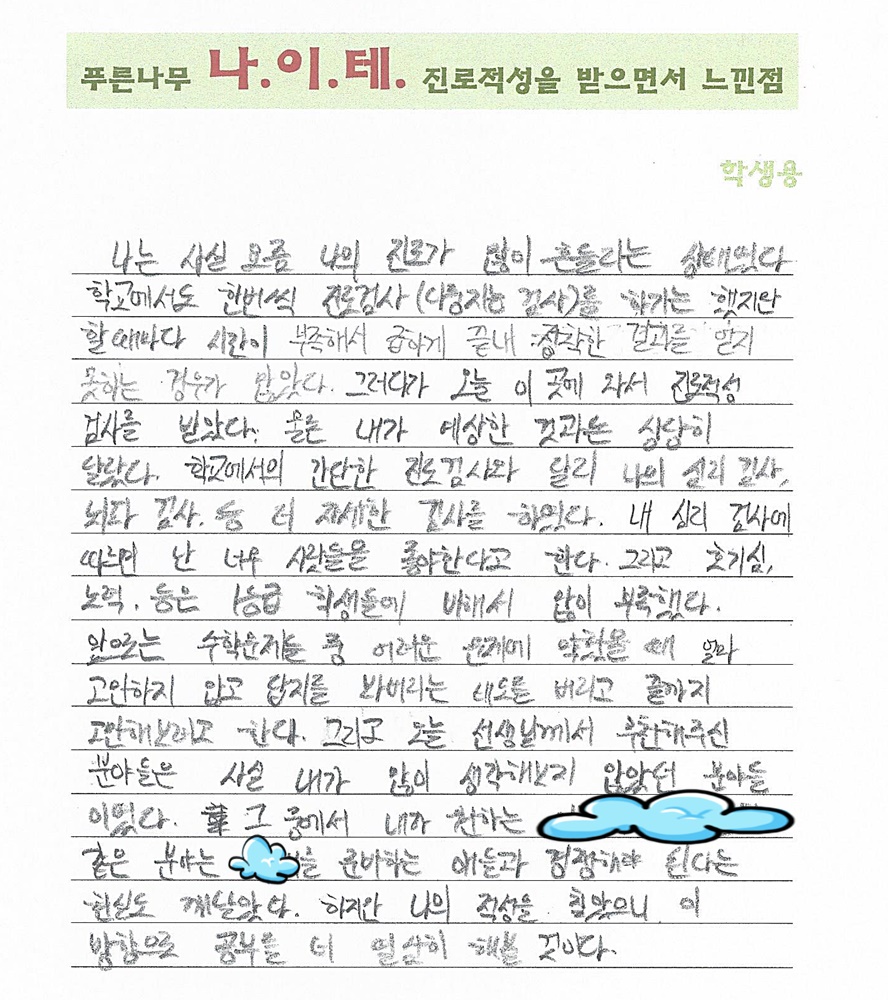 푸른나무 나.이.테. 진로적성을 받으면서 느낀점
학생용
나는 사실 요즘 나의 진로가 많이 흔들리는 상태였다
학교에서도 한번씩 진로검사 (다중지능 검사)를 하기는 했지만
할때마다 시간이 부족해서 급하게 끝내 정확한 결과를 얻지
못하는 경우가 많았다. 그러다가 오늘 이 곳에 와서 진로적성
검사를 받았다. 물론 내가 예상한 것과는 상당히
달랐다. 학교에서의 간단한 진로검사와 달리 나의 심리 검사,
뇌파 검사, 등 더 자세한 검사를 하였다. 내 심리 검사에
따르면 난 너무 사람들을 좋아한다고 한다. 그리고 호기심,
노력, 등은 1등급 학생들에 비해서 많이 부족했다.
앞으로는 수학문제들 중 어려운 문제에 막혔을 때 얼마
고민하지 않고 답지를 봐버리는 태도를 버리고 끝까지
고민해보려고 한다. 그리고 오늘 선생님께서 추천해주신
분야들은 사실 내가 많이 생각해보지 않았던 분야들
이었다. 그 중에서 내가 원하는
같은 분야는 를 준비하는 애들과 경쟁해야 된다는
현실도 깨달았다. 하지만 나의 적성을 찾았으니 이
방향으로 공부를 더 열심히 해볼 것이다.